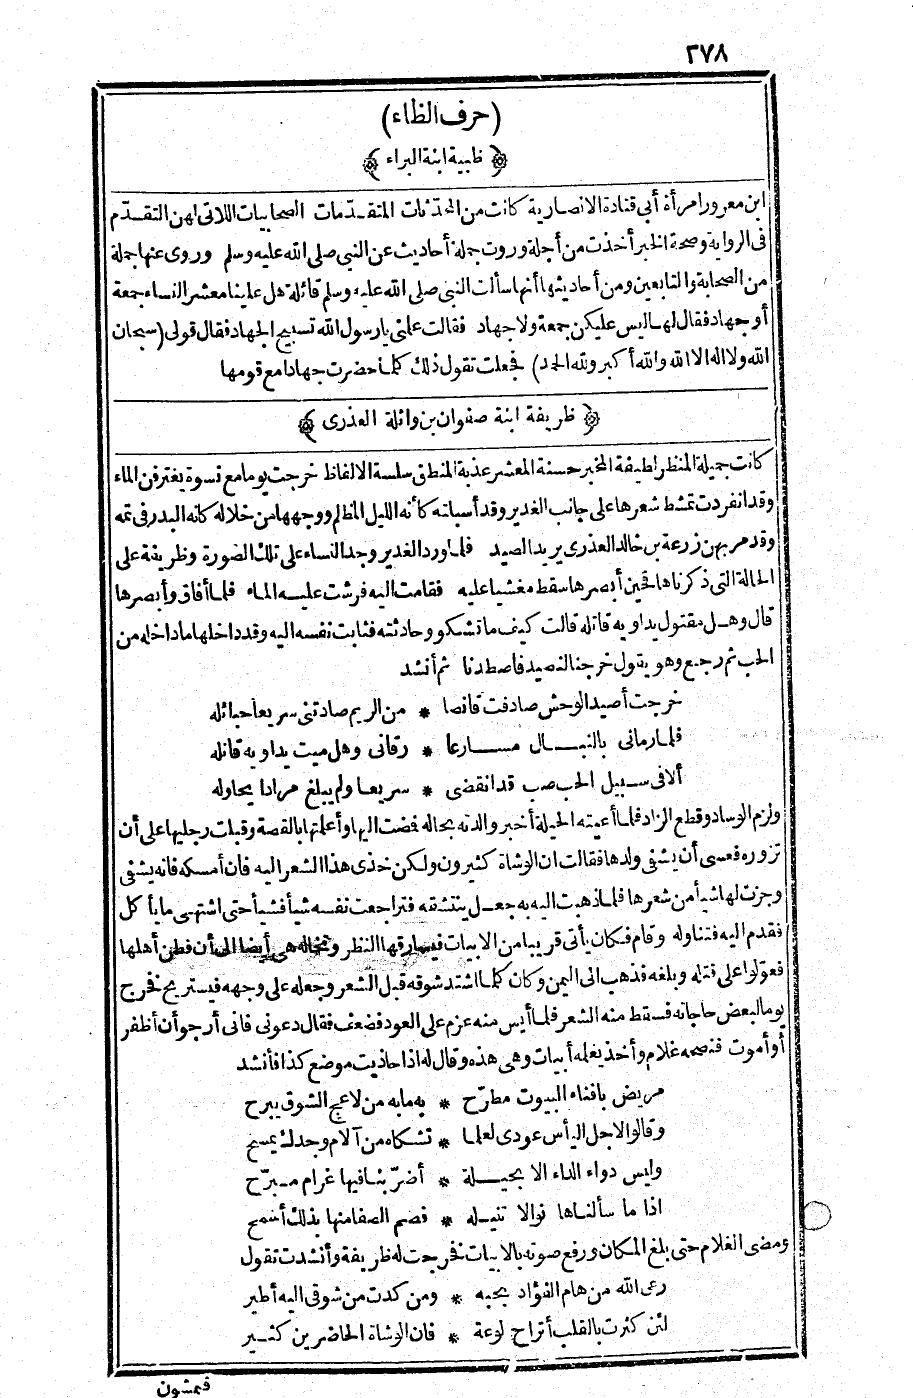 ٢٧٨
(حرف الظاء)
﴿ظبية ابنة البراء﴾
ابن معرور امرأة أبي قتادة الانصارية كانت من المحدّثات المتقدّمات الصحابيات اللاتى لهن التقدّم
فى الرواية وصحة الخبر أخذت من أجلة وروت جملة أحاديث عن النبي صلى الله عليه وسلم وروى عنها جملة
من الصحابة والتابعين ومن أحاديثها أنها سألت النبي صلى الله عليه وسلم قائلة هل علينا معشر النساء جمعة
أو جهاد فقال لها ليس عليكن جمعة ولا جهاد فقالت علمني يا رسول الله تسبيح الجهاد فقال قولى (سبحان
الله ولا اله الا الله والله أكبر ولله الحمد) فجعلت تقول ذلك كلما حضرت جهادا مع قومها
﴿ظريفة ابنة صفوان بن وائلة العذرى﴾
كانت جميلة المنظر لطيفة المخبر حسنة المعشر عذبة المنطق سلسة الالفاظ خرجت يوما مع نسوة يغترفن الماء
وقد انفردت تمشط شعرها على جانب الغدير وقد أسبلته كأنه الليل المظلم ووجهها من خلاله كانه البدر فى تمه
وقد مر بهن زرعة بن خالد العذرى يريد الصيد فلما ورد الغدير وجد النساء على تلك الصورة وظريفة على
الحالة التي ذكرناها فحين أبصرها سقط مغشيا عليه فقامت اليه فرشت عليه الماء فلما أفاق وأبصرها
قال وهل مقتول يداويه قاتله قالت كيف ما تشكو وحادثته فثابت نفسه اليه وقد داخلها ما داخله من
الحب ثم رجع وهو يقول خرجنا لنصيد فاصطدنا ثم أنشد
خرجت أصيد الوحش صادفت قانصا * من الريم صادتنى سريعا حبائله
فلما رمانى بالنبال مسارعا * رقانى وهل ميت يداويه قاتله
ألا فى سبيل الحب صب قد انقضى * سريعا ولم يبلغ مرادا يحاوله
ولزم الوساد وقطع الزاد فلما أعيته الحيلة أخبر والدته بحاله فمضت اليها وأعلمتها بالقصة وقبلت رجليها على أن
تزوره فعسى أن يشفى ولدها فقالت ان الوشاة كثيرون ولكن خذى هذا الشعر اليه فان أمسكه فانه يشفى
وجزت لها شيأ من شعرها فلما ذهبت اليه به جعل يتنشقه فتراجعت نفسه شيأ فشيأ حتى اشتهى ما يأكل
فقدم اليه فتناوله وقام فكان يأتى قريبا من الابيات فيسارقها النظر وتخاله هى أيضا الى أن فطن أهلها
فعولوا على قتله وبلغه فذهب الى اليمن وكان كلما اشتد شوقه قبل الشعر وجعله على وجهه فيستريح فخرج
يوما لبعض حاجاته فسقط منه الشعر فلما أيس منه عزم على العود فضعف فقال دعونى فانى أرجو أن أظفر
أو أموت فنصحه غلام وأخذ يعلمه أبيات وهى هذه وقال له اذا حاذيت موضع كذا فأنشد
مريض بافناء البيوت مطرّح * به ما به من لاعج الشوق يبرح
وقالوا لاجل اليأس عودى لعلما * تشكاه من آلام وجدك يمسح
وليس دواء الداء الا بحيلة * أضرّ بنا فيها غرام مبرّح
اذا ما سألناها نوالا تنيله * فصم الصفا منها بذلك أسمح
ومضى الغلام حتى بلغ المكان ورفع صوته بالابيات فخرجت له ظريفة وأنشدت تقول
رعى الله من هام الفؤاد بحبه * ومن كدت من شوقى اليه أطير
لئن كثرت بالقلب أتراح لوعة * فان الوشاة الحاضرين كثير
فمشون